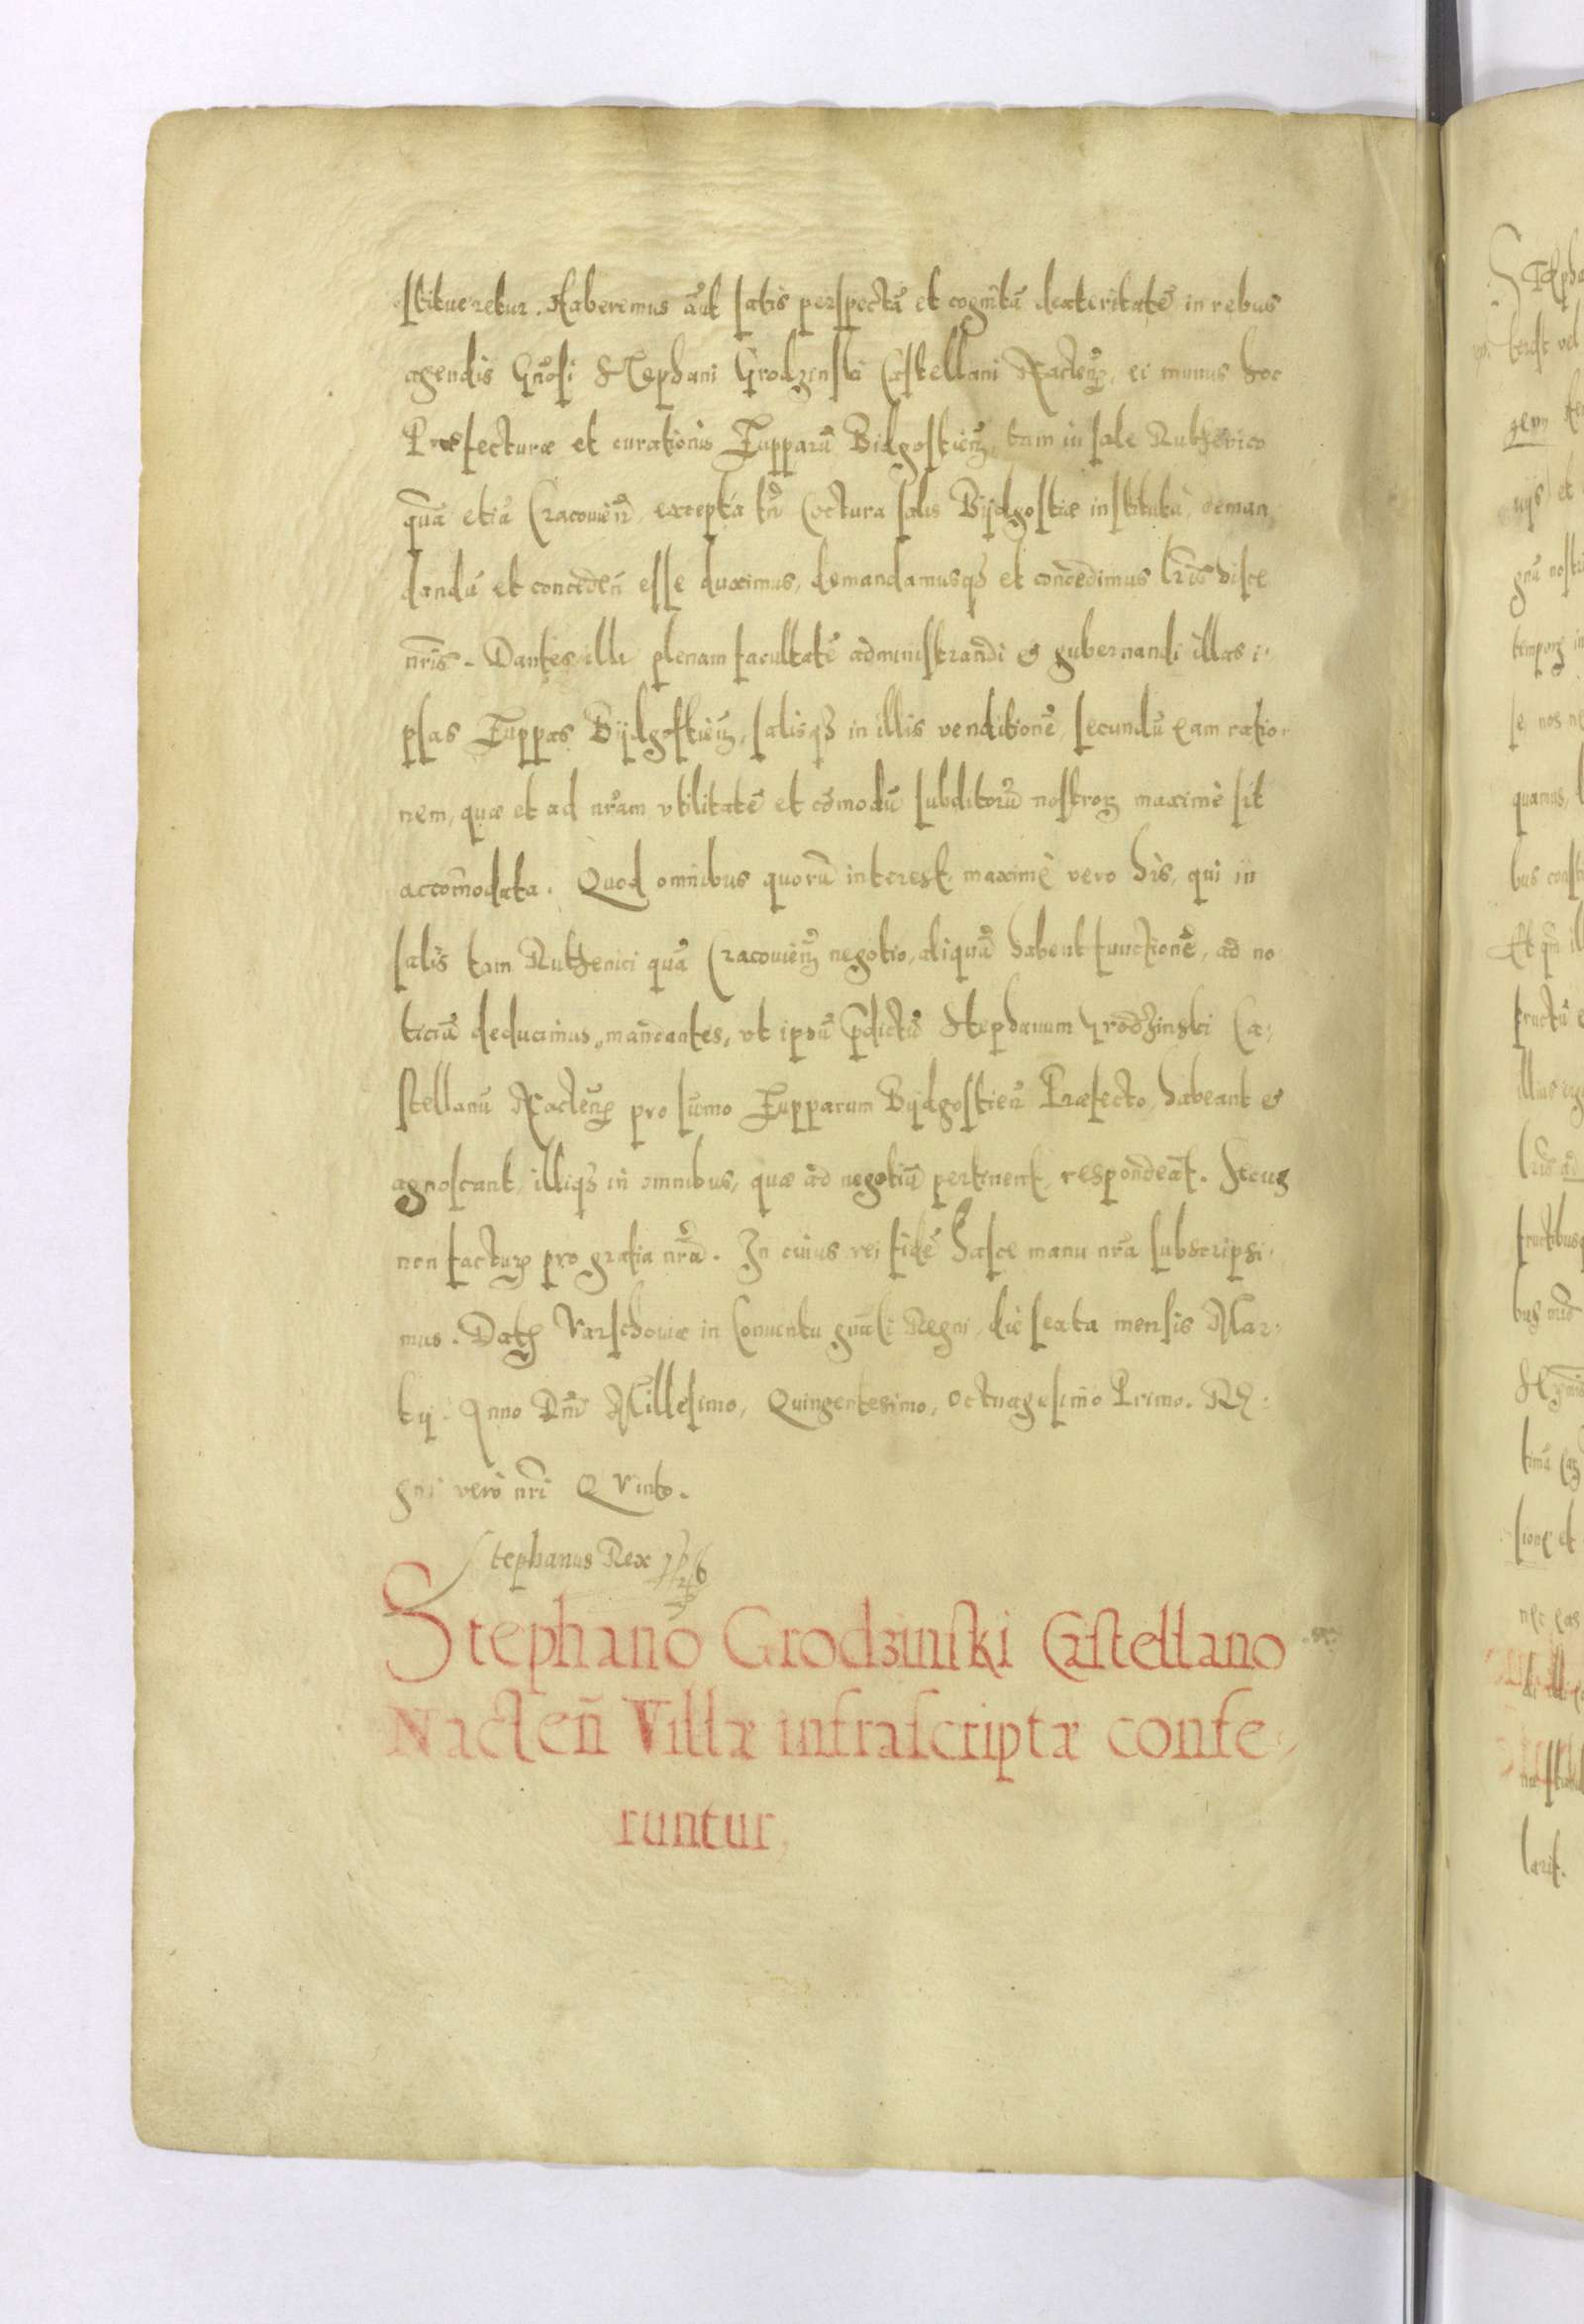 stitueretur. Haberemus aūt satis perspectā et cognitā dexteritatē in rebus
agendis Gn̄osi Stephani Grodzinski Castellani Nacłeñ, ei munus hoc
Præfecturæ et curationis Zupparū Bidgostień, tam in sale Ruthenico
quā etiā Cracovień, excepta tn̄ Coctura salis Bijdgostiæ institutā, deman
dandū et conceden̄ esse duximus, demandamusqȝ et concedimus lr̄is hisce
nr̄is. Dantes illi plenam facultatē administrandi & gubernandi illas i-
psas Zuppas Bijdgostień, salisqȝ in illis venditionē, secundū eam ratio-
nem, quæ et ad nr̄am vtilitatē et cōmodū subditorū nostroꝝ maximè sit
accōmodata. Quod omnibus quorū interest, maximè vero his, qui in
salis tam Ruthenici quā Cracovień negotio, aliquā habent functionē, ad no
ticiā deducimus, mandantes, vt ipsū p̄dictū Stephanum Grodzinski Ca-
stellanū Nacłeñ pro sūmo Zupparum Bijdgostień Præfecto, habeant &
agnoscant, illiqȝ in omnibus, quæ ad negotiū pertinent, respondeāt. Secus
non facturȝ pro gratia nr̄a. In cuius rei fidē hasce manu nr̄a subscripsi-
mus. Datȝ Varschoviæ in Conuentu gn̄ali Regni, die sexta mensis Mar-
tij. Anno Dn̄i Millesimo, Quingentesimo, octuagesimo Primo. Re-
gni vero nr̄i Quinto.
Stephanus Rex
Stephano Grodzinski Castellano
Nacłeñ Villæ infrascriptæ confe-
runtur,